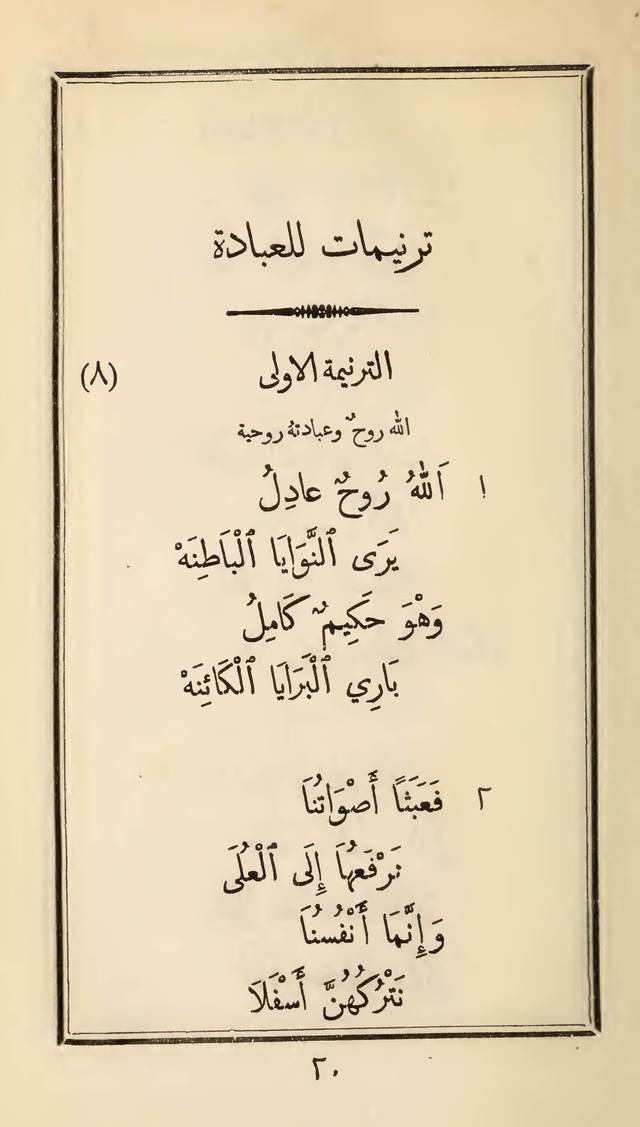 ترنيمات للعبادة
الترنيمة الاولى (٨)
الله روحٌ وعبادتهُ روحية
١ اَللهُ رُوحٌ عادِلُ
يَرَى ٱلنَّوَايَا ٱلْبَاطِنَهْ
وَهْوَ حَكِيمٌ كَامِلُ
بَارِي ٱلْبَرَايَا ٱلْكَائِنَهْ
٢ فَعَبَثًا أَصْوَاتُنَا
نَرْفَعُهَا إِلَى ٱلْعُلَى
وَإِنَّمَا أَنْفُسُنَا
نَتْرُكُهُنَّ أَسْفَلَا
٢٠